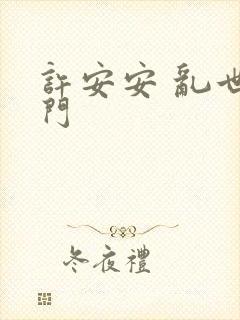 許安安 亂世
門
冬夜禮